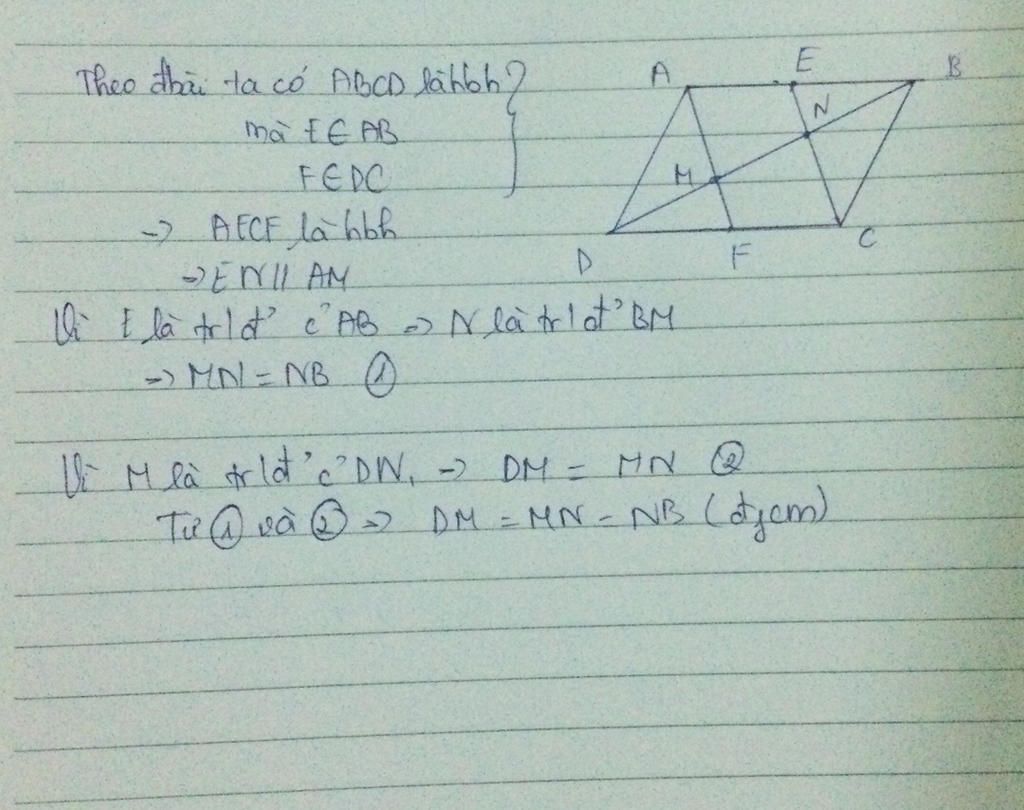 Theo đbài ta có ABCD là hbh
mà E ∈ AB
F ∈ DC
→ AECF là hbh
→ EN // AM
Vì E là tr/đ' c' AB → N là tr/đ' BM
→ MN = NB ①
Vì M là tr/đ' c' DN, → DM = MN ②
Từ ① và ② → DM = MN = NB (đpcm)
A E B
N
M
D F C